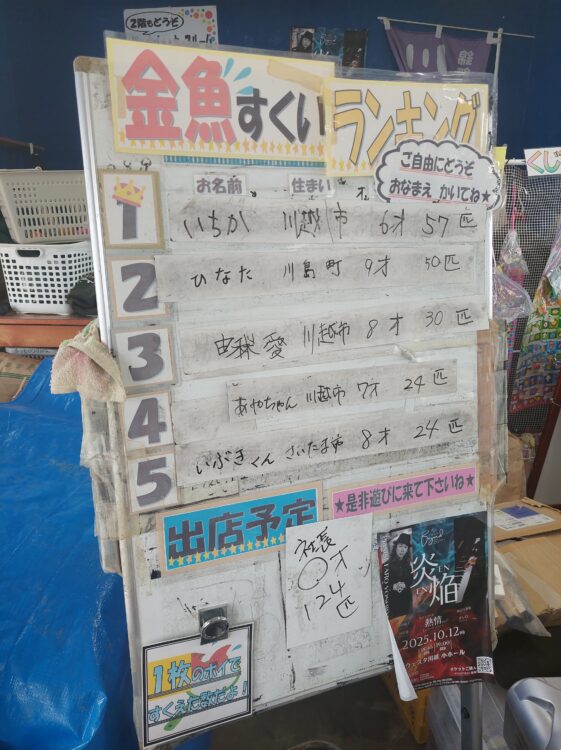 2階もどうぞ
金魚すくい
ランキング
ご自由にどうぞ
おなまえ かいてね★
くじ
お名前 住まい
1 いちか 川越市 6才 57匹
2 ひなた 川島町 9才 50匹
3 愛 川越市 8才 30匹
4 あやちゃん 川越市 7才 24匹
5 いぶきくん さいたま市 8才 24匹
出店予定
★是非遊びに来て下さいね★
社長
〇才
124匹
1枚のポイで
すくえた数だよ!
炎
EN
焔
EN
熱情
2025.10.12
ウェスタ川越 小ホール